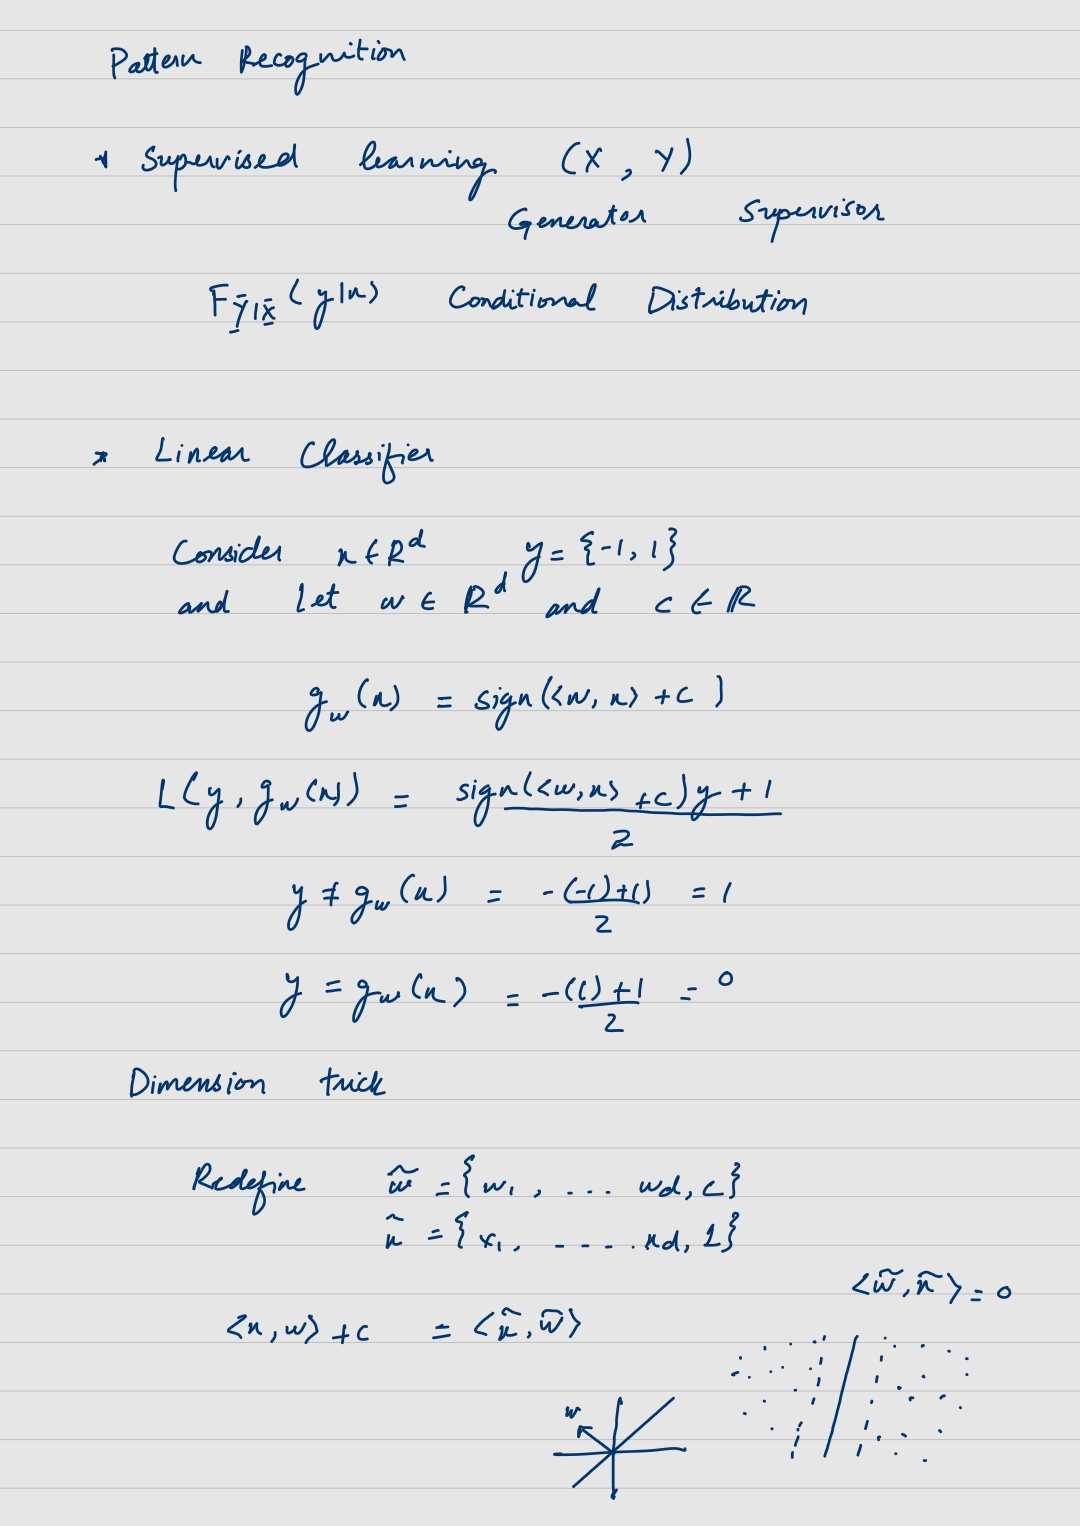 Pattern Recognition
* Supervised learning (X, Y)
Generator Supervisor
F_{Y|X}(y|x) Conditional Distribution
* Linear Classifier
Consider x ∈ R^d y = {-1, 1}
and let w ∈ R^d and c ∈ R
g_w(x) = sign(<w, x> + c)
L(y, g_w(x)) = sign(<w, x> + c)y + 1
2
y ≠ g_w(x) = -(-1)+1) = 1
2
y = g_w(x) = -(1)+1 = 0
2
Dimension trick
Redefine w̃ = {w_1, ... w_d, c}
x̃ = {x_1, ..... x_d, 1}
<w̃, x̃> = 0
<x, w> + c = <x̃, w̃>
w